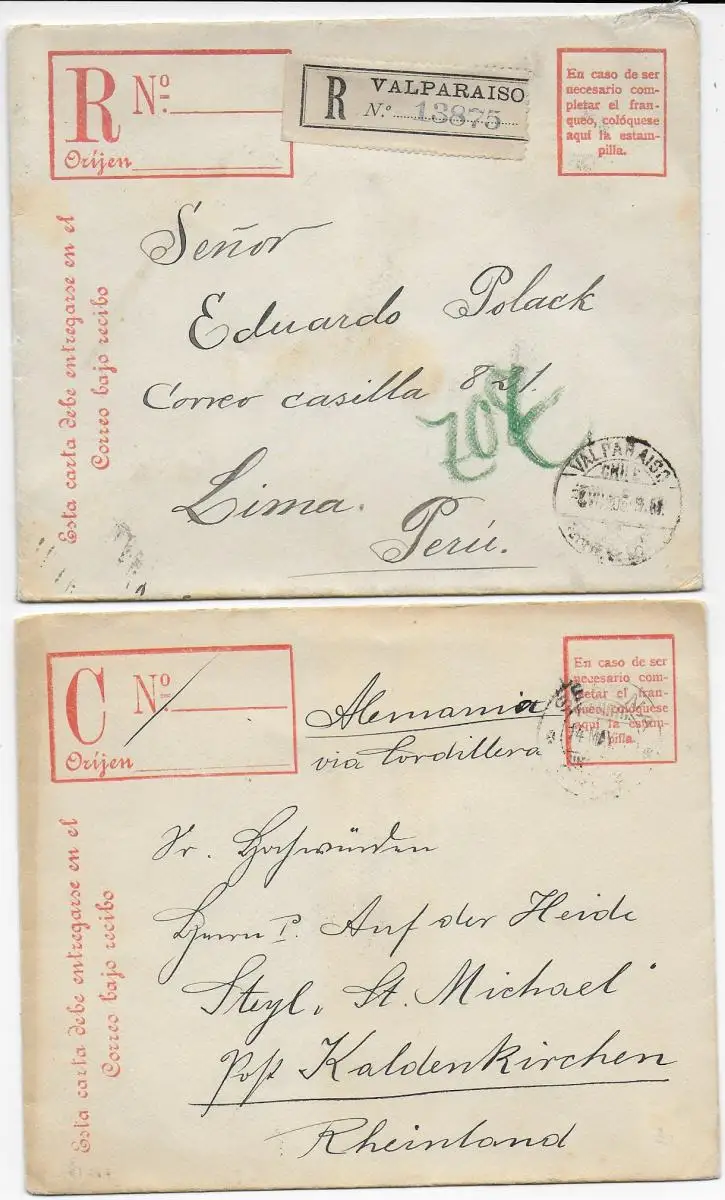 R Nº
Oríjen
R VALPARAISO
N.º 13875
En caso de ser
necesario com-
pletar el fran-
queo, colóquese
aquí la estam-
pilla.
Esta carta debe entregarse en el
Correo bajo recibo
Señor
Eduardo Polack
Correo casilla 821.
Lima.
Perú.
VALPARAISO
CHILE
C Nº
Oríjen
En caso de ser
necesario com-
pletar el fran-
queo, colóquese
aquí la estam-
pilla.
Alemania
via Cordillera
Esta carta debe entregarse en el
Correo bajo recibo
Sr. Hochwürden
Herrn P. Auf der Heide
Steyl, St. Michael"
Post Kaldenkirchen
Rheinland